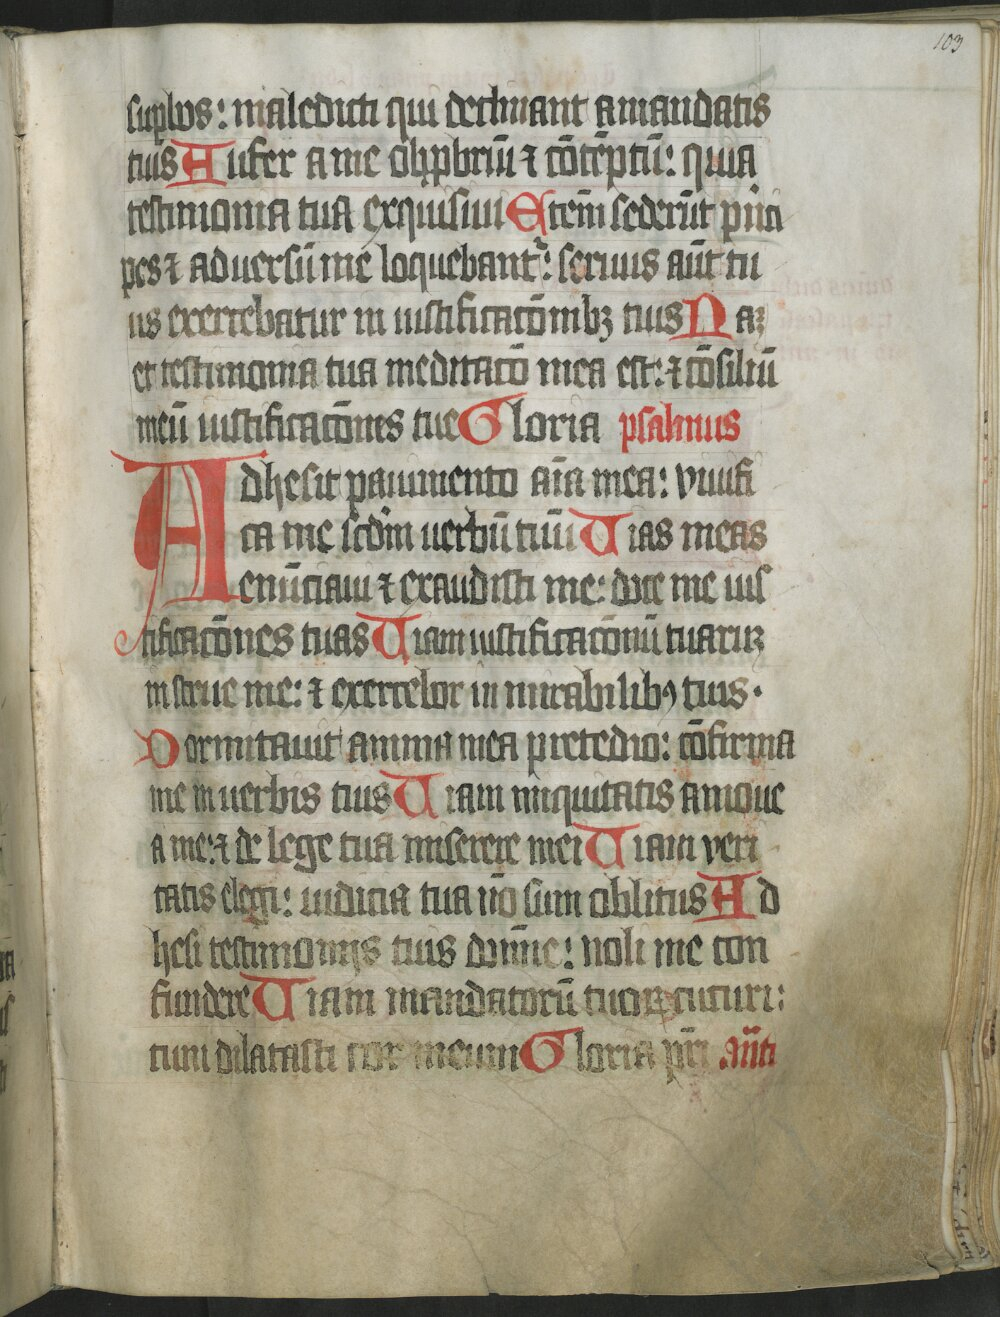 103
suplos: maledicti qui declinant a mandatis
tuis Aufer a me obprbriū ⁊ cōtēptū: quia
testimonia tua exquisiui Etem̄ sederūt prīci
pes ⁊ aduersū me loquebant᷑: seruus aūt tu
us exercebatur in iustificacōnibꝫ tuis Naꝫ
et testimonia tua meditacō mea est: ⁊ cōsiliū
meū iustificacōnes tue Gloria psalmus
Adhesit pauimento aīa mea: viuifi
ca me scdm̄ uerbū tuū Uias meas
enūciaui ⁊ exaudisti me: doce me ius
tificacōnes tuas Uiam iustificacōnū tuarꝝ
instrue me: ⁊ exercebor in mirabilibꝰ tuis.
Dormitauit anima mea pre tedio: cōfirma
me in uerbis tuis Uiam iniquitatis amoue
a me: ⁊ de lege tua miserere mei Uiam veri
tatis elegi: iudicia tua nō sum oblitus Ad
hesi testimonijs tuis domīe: noli me con
fundere Uiam mandatorū tuoꝝ cucurri:
cum dilatasti cor meum Gloria pr̄i Añti